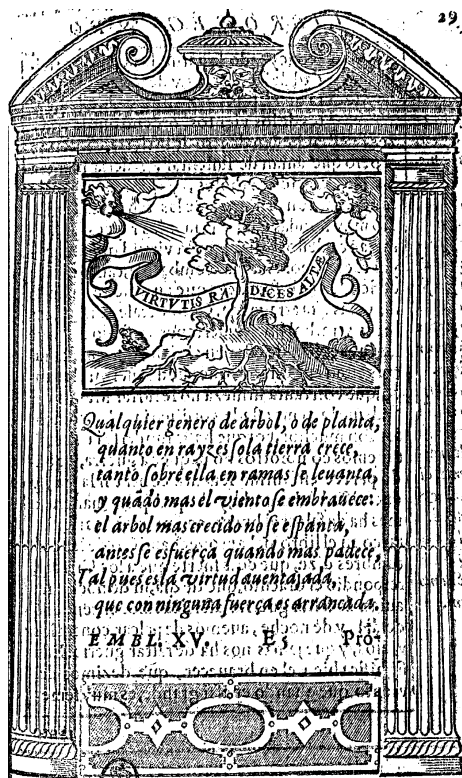 29
VIRTVTIS RADICES ALTÆ
Qualquier genero de arbol, ò de planta,
quanto en rayzes so la tierra crece,
tanto sobre ella en ramas se leuanta,
y quãdo mas el viento se embrauece:
el arbol mas crecido no se espanta,
antes se esfuerça quando mas padece,
Tal pues es la virtud auentajada,
que con ninguna fuerça es arrancada.
EMBL. XV. Es Pro-